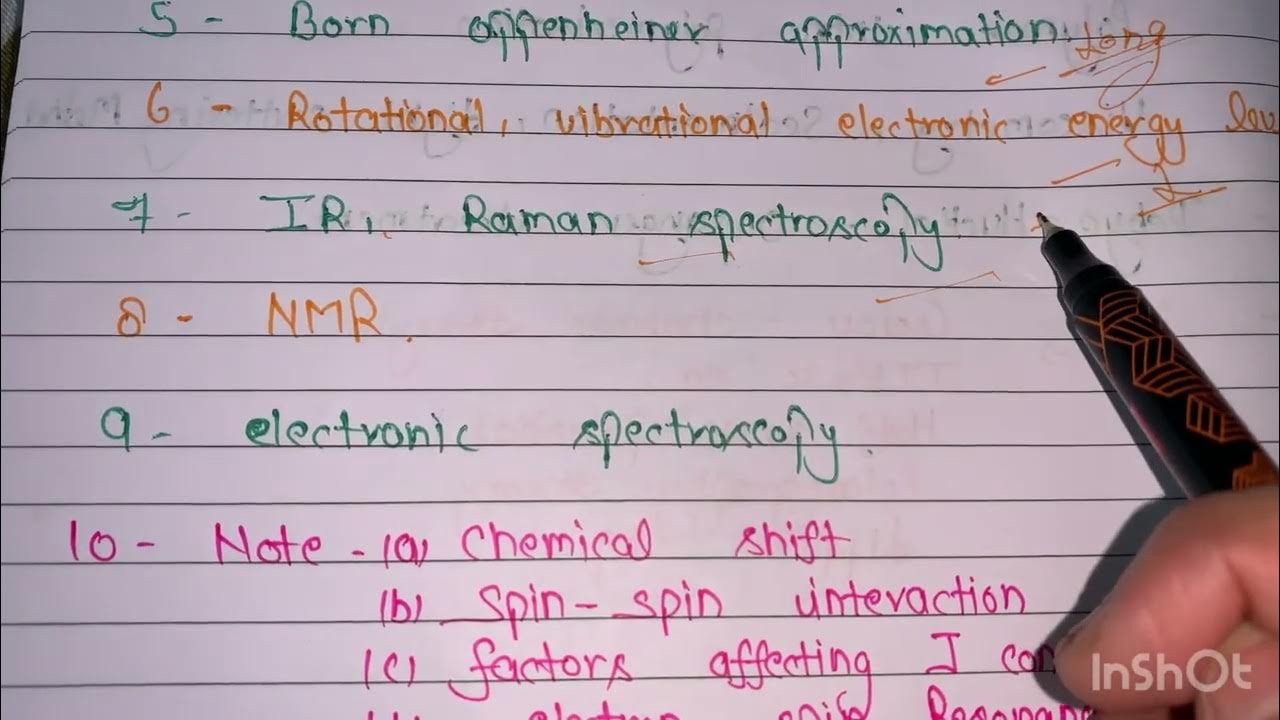 5 - Born oppenheiner approximation. Long
6 - Rotational, vibrational electronic energy lev
7 - IR, Raman spectroscopy
8 - NMR.
9 - electronic spectroscopy.
10 - Note - (a) Chemical shift
(b) Spin-spin interaction
(c) factors affecting J con
electron spin Resonan
InShOt